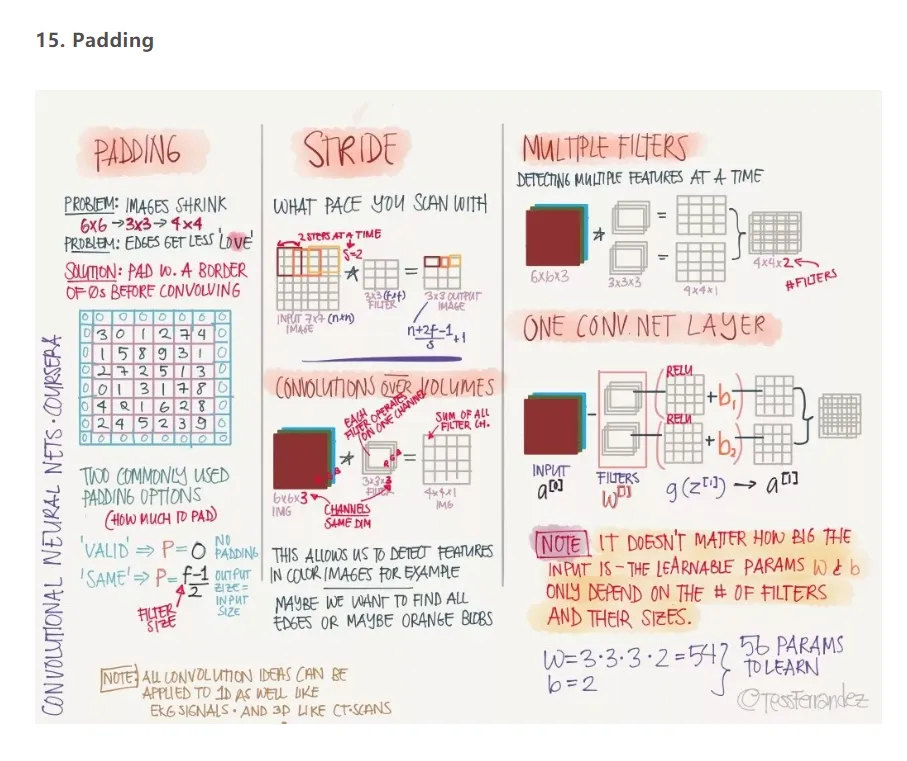 15. Padding
CONVOLUTIONAL NEURAL NETS · COURSERA
PADDING
PROBLEM: IMAGES SHRINK
6x6 → 3x3 → 4x4
PROBLEM: EDGES GET LESS 'LOVE'
SOLUTION: PAD W. A BORDER
OF 0s BEFORE CONVOLVING
0 0 0 0 0 0 0 0
0 3 0 1 2 7 4 0
0 1 5 8 9 3 1 0
0 2 7 2 5 1 3 0
0 0 1 3 1 7 8 0
0 4 2 1 6 2 8 0
0 2 4 5 2 3 9 0
0 0 0 0 0 0 0 0
TWO COMMONLY USED
PADDING OPTIONS
(HOW MUCH TO PAD)
'VALID' ⇒ P=0 NO PADDING
'SAME' ⇒ P=f-1/2 OUTPUT SIZE = INPUT SIZE
FILTER SIZE
NOTE: ALL CONVOLUTION IDEAS CAN BE
APPLIED TO 1D AS WELL LIKE
EKG SIGNALS · AND 3D LIKE CT-SCANS
STRIDE
WHAT PACE YOU SCAN WITH
2 STEPS AT A TIME
S=2
* =
INPUT 7x7 (nxn)
IMAGE
3x3 (fxf)
FILTER
3x3 OUTPUT
IMAGE
n+2f-1/S +1
CONVOLUTIONS OVER VOLUMES
EACH
FILTER OPERATES
ON ONE CHANNEL
SUM OF ALL
FILTER CH.
* =
R G B
6x6x3
IMG
3x3x3
FILTER
4x4x1
IMG
CHANNELS
SAME DIM
THIS ALLOWS US TO DETECT FEATURES
IN COLOR IMAGES FOR EXAMPLE
MAYBE WE WANT TO FIND ALL
EDGES OR MAYBE ORANGE BLOBS
MULTIPLE FILTERS
DETECTING MULTIPLE FEATURES AT A TIME
* =
=
6x6x3
3x3x3
4x4x1
4x4x2
# FILTERS
ONE CONV. NET LAYER
RELU
+b₁
RELU
+b₂
INPUT
a[0]
FILTERS
W[1]
g(z[1]) → a[1]
NOTE IT DOESN'T MATTER HOW BIG THE
INPUT IS - THE LEARNABLE PARAMS W & b
ONLY DEPEND ON THE # OF FILTERS
AND THEIR SIZES.
W=3·3·3·2=54
b=2
56 PARAMS
TO LEARN
@TessFerrandez